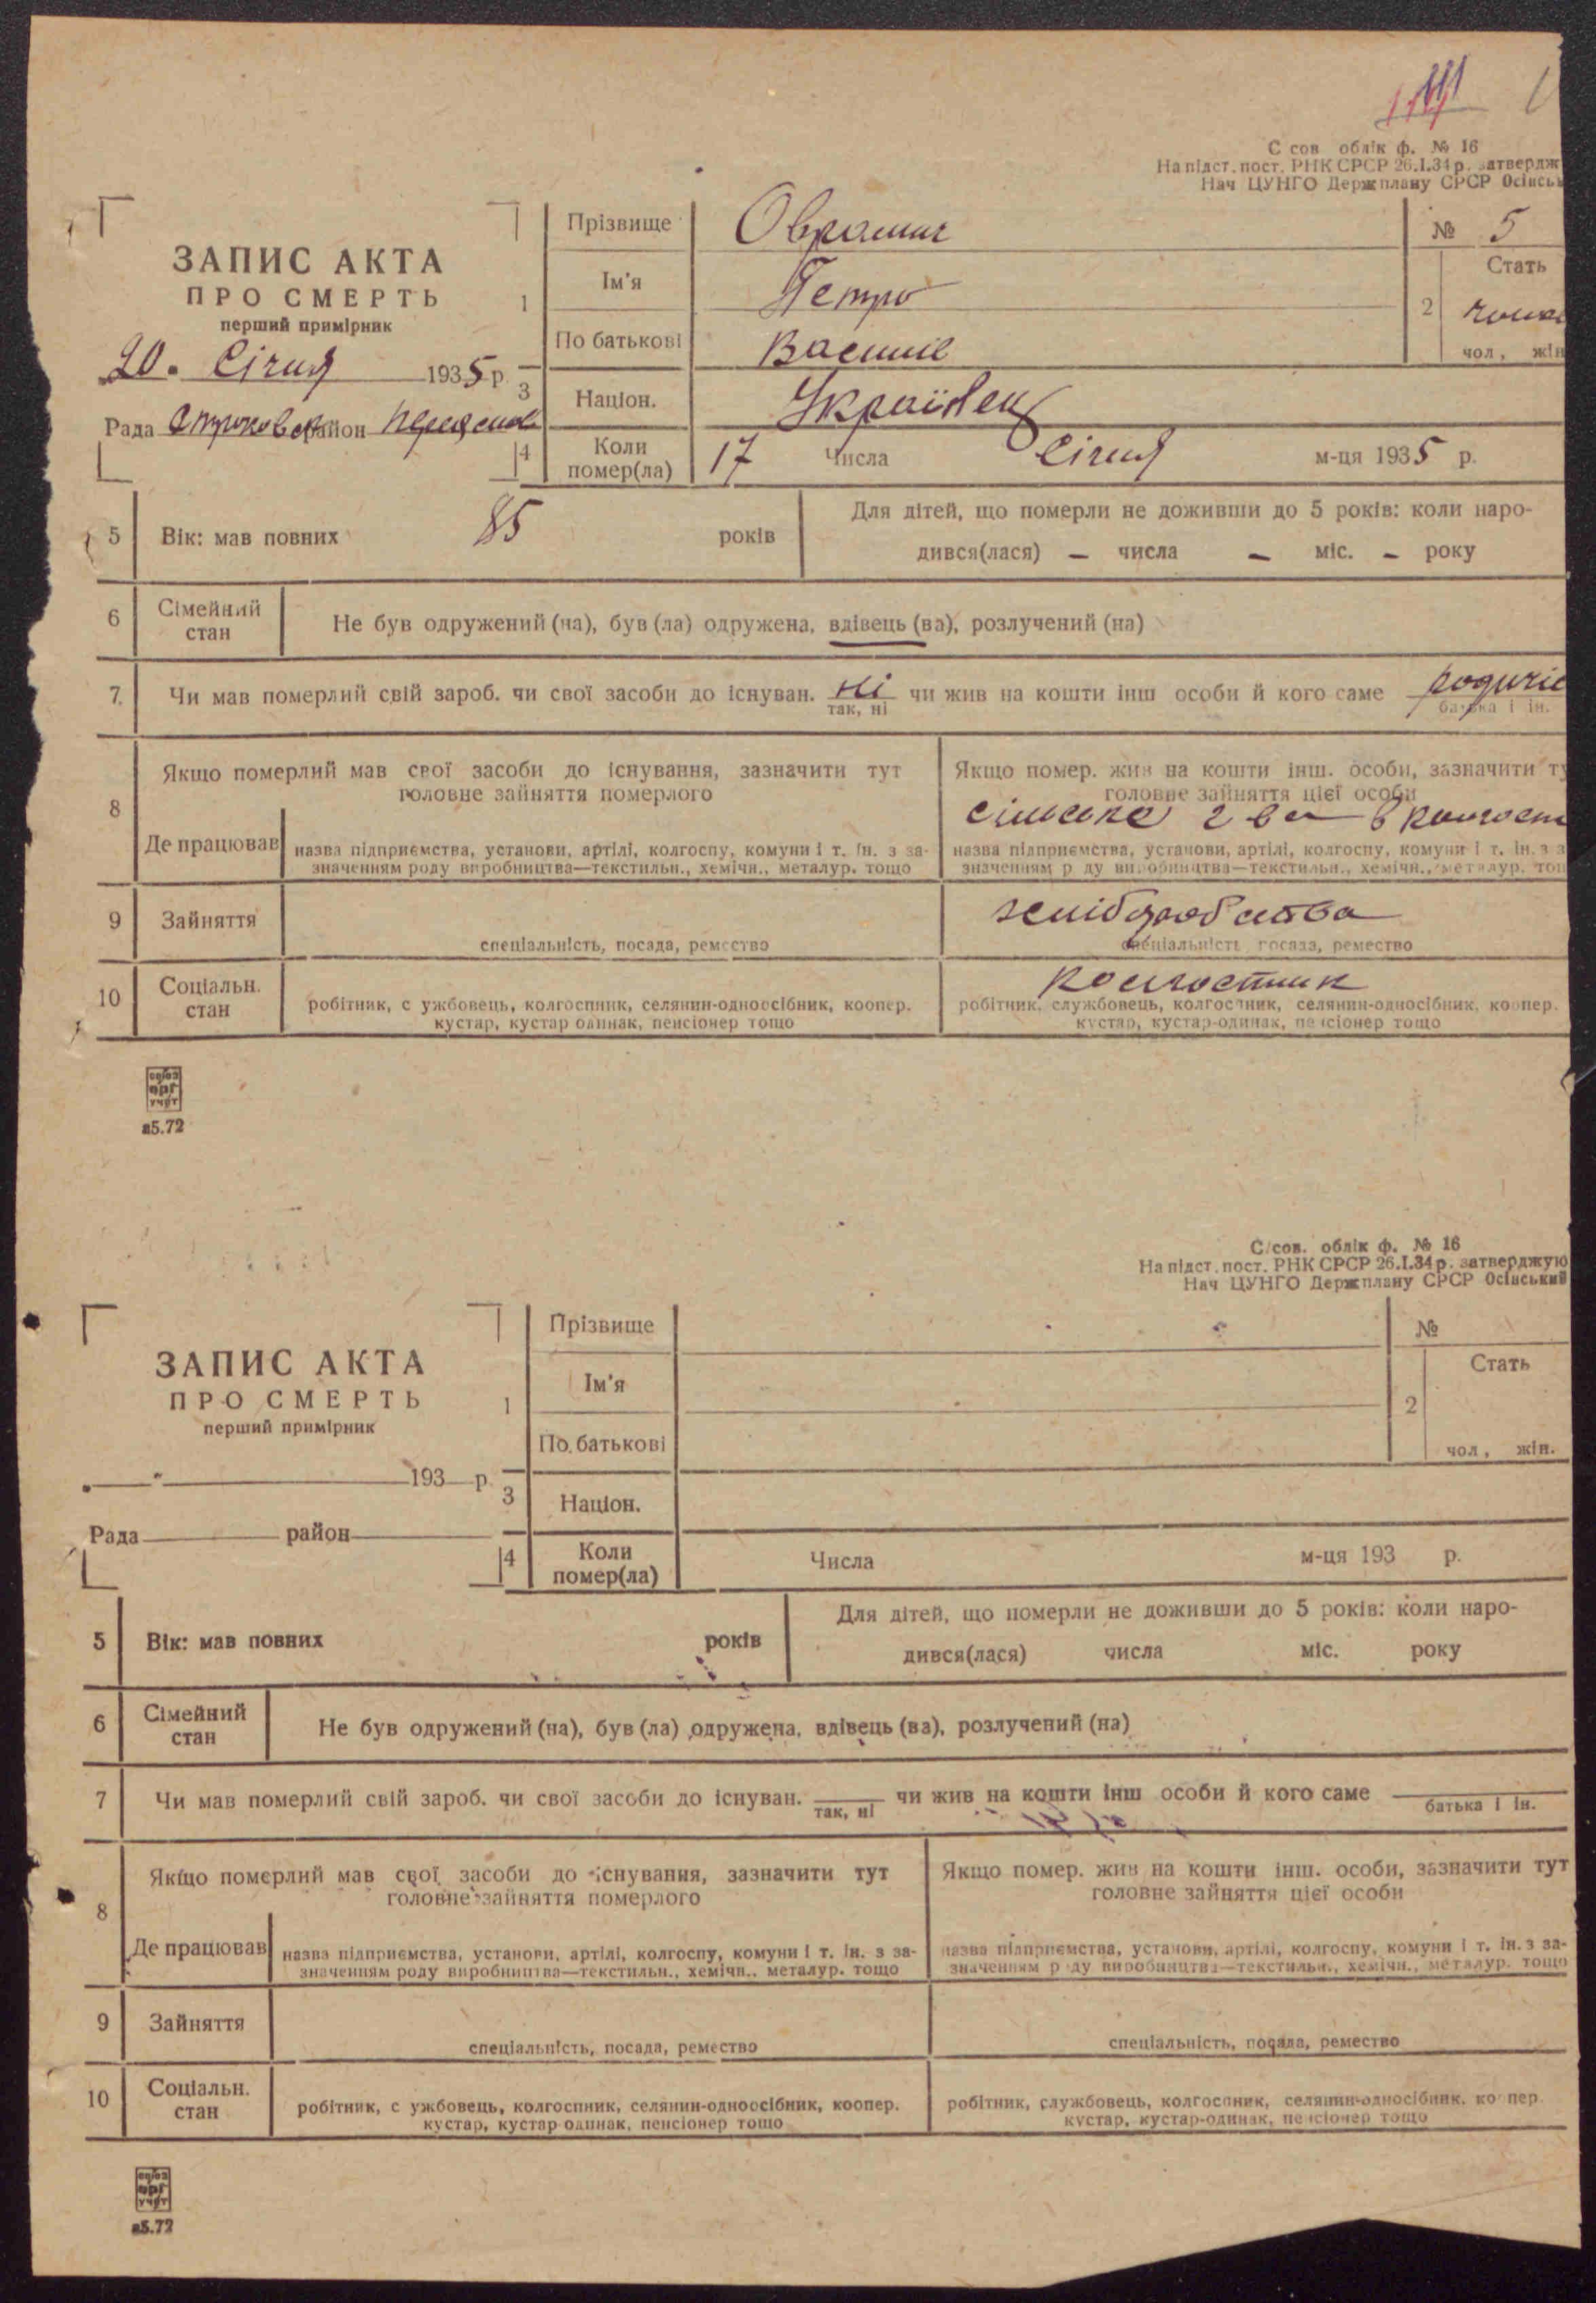 С сов облік ф. № 16
На підст. пост. РНК СРСР 26.I.34 р. затвердж
Нач ЦУНГО Держплану СРСР Осінськ
ЗАПИС АКТА
ПРО СМЕРТЬ
перший примірник
20. Січня 1935 р.
Рада район
1 Прізвище
№ 5
Ім'я Петро
По батькові Василів
2 Стать
чол, жін
3 Націон. Українец
4 Коли помер(ла) 17 Числа Січня м-ця 1935 р.
5 Вік: мав повних 85 років
Для дітей, що померли не доживши до 5 років: коли наро-
дився(лася) — числа — міс. — року
6 Сімейний стан Не був одружений (на), був (ла) одружена, вдівець (ва), розлучений (на)
7. Чи мав померлий свій зароб. чи свої засоби до існуван. ні чи жив на кошти інш особи й кого саме
так, ні
батька і ін.
8 Якщо померлий мав свої засоби до існування, зазначити тут
головне зайняття померлого
Де працював
назва підприємства, установи, артілі, колгоспу, комуни і т. ін. з за-
значенням роду виробництва—текстильн., хемічн., металур. тощо
Якщо помер. жив на кошти інш. особи, зазначити ту
головне зайняття цієї особи
назва підприємства, установи, артілі, колгоспу, комуни і т. ін. з з
значенням роду виробництва—текстильн., хемічн., металур. тощ
9 Зайняття
спеціальність, посада, ремество
спеціальність посада, ремество
10 Соціальн. стан
робітник, с ужбовець, колгоспник, селянин-одноосібник, коопер.
кустар, кустар одинак, пенсіонер тощо
робітник, службовець, колгоспник, селянин-односібник, коопер.
кустар, кустар-одинак, пенсіонер тощо
союз
орг
учет
а5.72
С/сов. облік ф. № 16
На підст. пост. РНК СРСР 26.I.34 р. затверджую
Нач ЦУНГО Держплану СРСР Осінський
ЗАПИС АКТА
ПРО СМЕРТЬ
перший примірник
193 р.
Рада район
1 Прізвище
№
Ім'я
По батькові
2 Стать
чол, жін.
3 Націон.
4 Коли помер(ла) Числа м-ця 193 р.
5 Вік: мав повних років
Для дітей, що померли не доживши до 5 років: коли наро-
дився(лася) числа міс. року
6 Сімейний стан Не був одружений (на), був (ла) одружена, вдівець (ва), розлучений (на)
7 Чи мав померлий свій зароб. чи свої засоби до існуван. чи жив на кошти інш особи й кого саме
так, ні
батька і ін.
8 Якщо померлий мав свої засоби до існування, зазначити тут
головне зайняття померлого
Де працював
назва підприємства, установи, артілі, колгоспу, комуни і т. ін. з за-
значенням роду виробництва—текстильн., хемічн., металур. тощо
Якщо помер. жив на кошти інш. особи, зазначити тут
головне зайняття цієї особи
назва підприємства, установи, артілі, колгоспу, комуни і т. ін. з за-
значенням роду виробництва—текстильн., хемічн., металур. тощо
9 Зайняття
спеціальність, посада, ремество
спеціальність, посада, ремество
10 Соціальн. стан
робітник, с ужбовець, колгоспник, селянин-одноосібник, коопер.
кустар, кустар одинак, пенсіонер тощо
робітник, службовець, колгоспник, селянин-односібник, коопер.
кустар, кустар-одинак, пенсіонер тощо
союз
орг
учет
а5.72